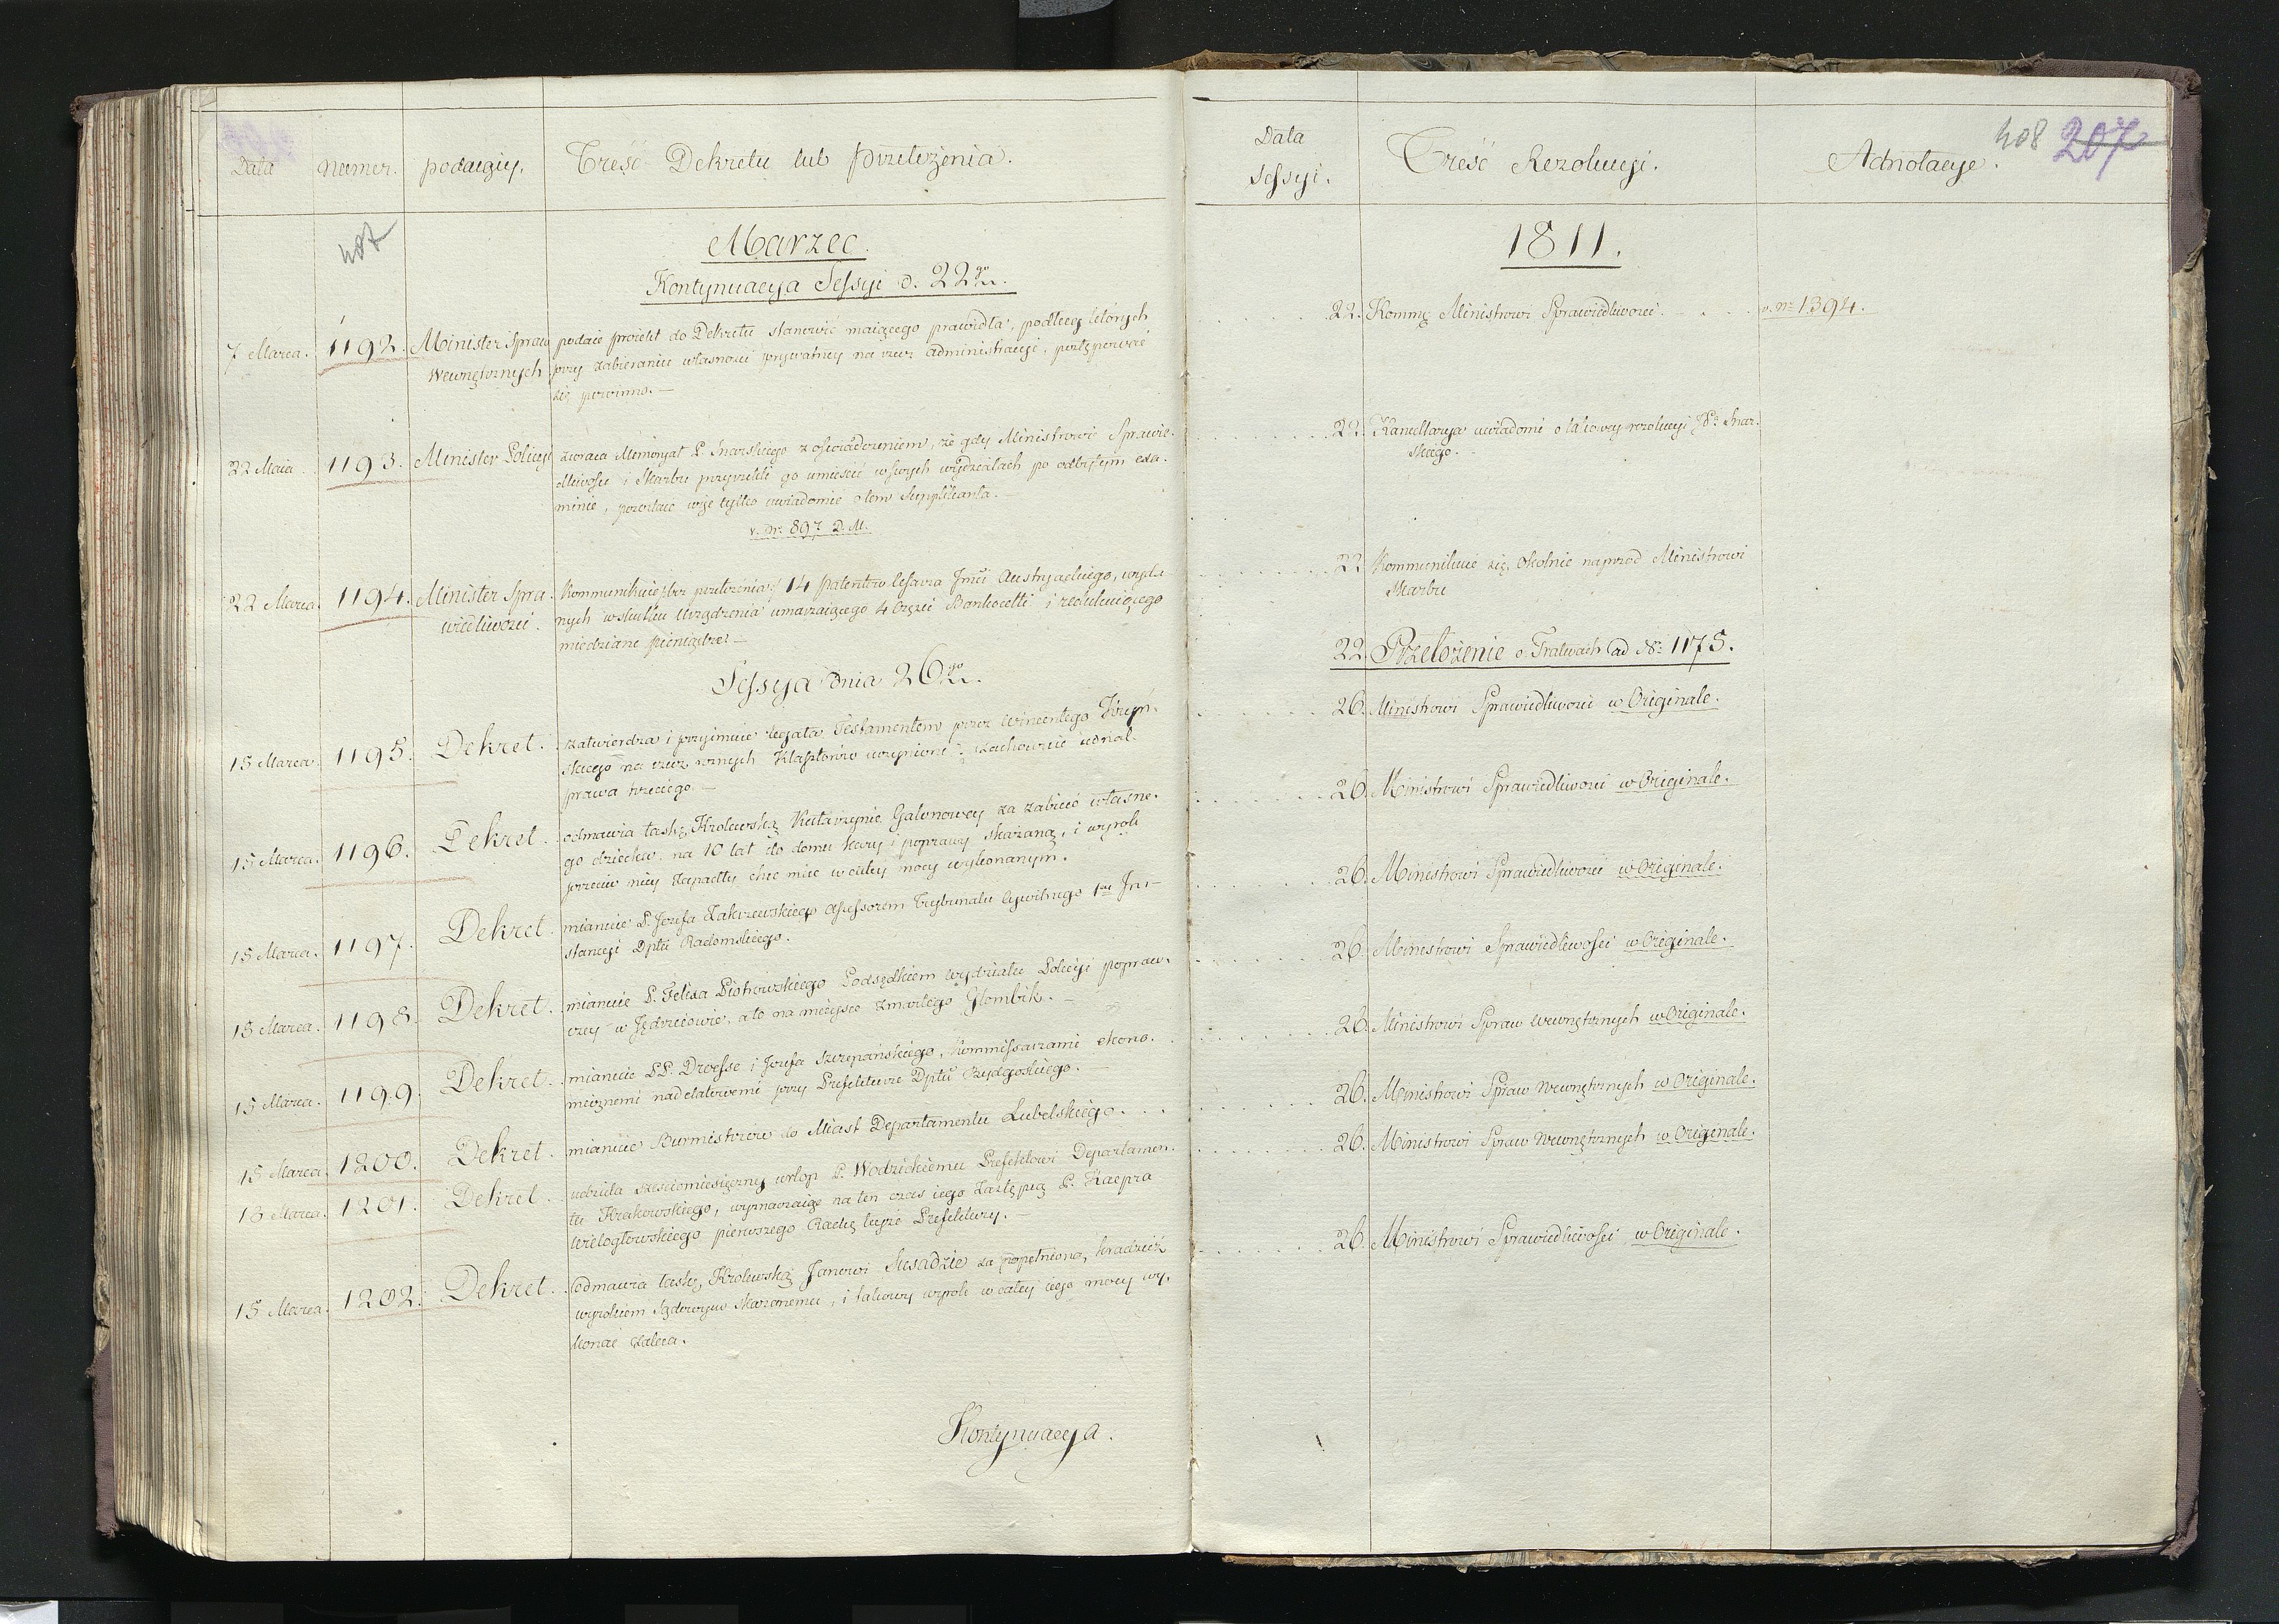 Data Numer. podaiący. Treść Dekretu lub przełożenia.
407
Marzec.
Kontynuacya Sessyi d. 22go
7 Marca. 1192. Minister Spraw podaie proiekt do Dekretu stanowić maiącego prawidła, podług których
Wewnętrznych przy zabieraniu własności prywatney na rzecz administracyi, postępować
się powinno.—
22 Maia 1193. Minister Policyi zwraca Memoryał P. Snarskiego z oświadczeniem, że gdy Ministrowie Sprawie-
dliwości i Skarbu przyrzekli go umieścić w swych wydziałach po odbytym exa-
minie, pozostaie więc tylko uwiadomić o tem Supplikanta.—
v. Nr. 897 D. M.
22 Marca. 1194. Minister Spra- Kommunikuie /:bez przełożenia:/ 14 Patentow Cesarza Jmci Austryackiego, wyda-
wiedliwości. nych w skutku Urządzenia umarzaiącego 4 części Bankocetli i redukuiącego
miedziane pieniądze.—
Sessya dnia 26go
15 Marca. 1195. Dekret. zatwierdza i przyimuie legata Testamentem przez Wincentego
skiego na rzecz rożnych Klasztorów uczynione; zachowuie iednak
prawa trzeciego.—
15 Marca. 1196. Dekret. odmawia łaskę Krolewską Katarzynie Galonowey za zabicie własne-
go dziecka na 10 lat do domu kary i poprawy skazaną, i wyrok
przeciw niey zapadły chce mieć w całey mocy wykonanym.
15 Marca. 1197. Dekret. mianuie P. Jozefa Zakrzewskiego Assessorem Trybunału Cywilnego 1ey In-
stancyi Dptu Radomskiego.
15 Marca. 1198. Dekret. mianuie P. Felixa Piotrowskiego Podsędkiem Wydziału Policyi popraw-
czey w Jędrzeiowie, a to na mieysce zmarłego Głombik.—
15 Marca. 1199. Dekret. mianuie PP. Droesse i Jozefa Szczepańskiego, Kommissarzami ekono-
micznemi nadetatowemi przy Prefekturze Dptu Bydgoskiego.—
15 Marca. 1200. Dekret. mianuie Burmistrzow do Miast Departamentu Lubelskiego. . . .
13 Marca. 1201. Dekret. udziela sześciomiesięczny urlop P. Wodzickiemu Prefektowi Departamen-
tu Krakowskiego, wyznaczaiąc na ten czas iego Zastępcą P. Kacpra
Wielogłowskiego pierwszego Radcę teyże Prefektury.—
15 Marca. 1202. Dekret. odmawia łaskę Krolewską Janowi Susadzie za popełnioną kradzież
wyrokiem Sądowym skazanemu, i takowy wyrok w całey iego mocy wy-
konać zaleca.
Kontynuacya.
Data
Sessyi. Treść Rezolucyi. Adnotacye. 408 207
1811.
22. Kommę Ministrowi Sprawiedliwości. — . v. Nr 1394.
22. Kancellarya uwiadomi o takowey rezolucyi JP. Snar-
skiego.
22 Kommunikuie się okolnie naprzod Ministrowi
Skarbu
22. Przełożenie o Tratwach ad Nr. 1175.
26. Ministrowi Sprawiedliwości w Originale.
26. Ministrowi Sprawiedliwości w Originale.
26. Ministrowi Sprawiedliwości w Originale.
26. Ministrowi Sprawiedliwości w Originale.
26. Ministrowi Spraw Wewnętrznych w Originale.
26. Ministrowi Spraw Wewnętrznych w Originale.
26. Ministrowi Spraw Wewnętrznych w Originale.
26. Ministrowi Sprawiedliwości w Originale.